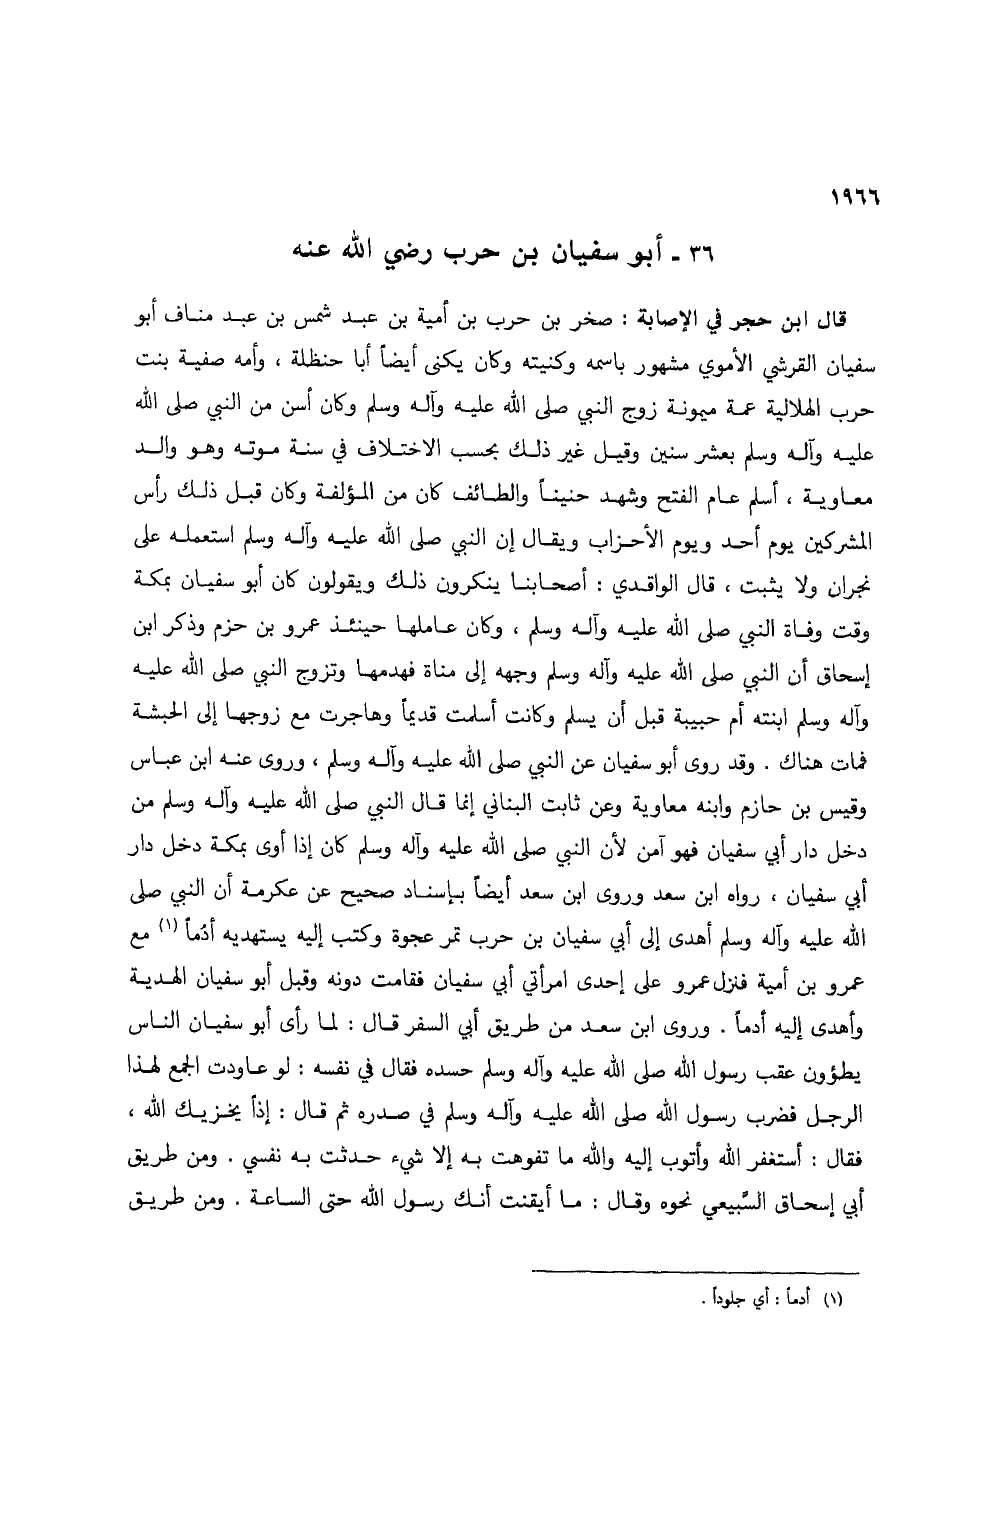 ١٩٦٦
٣٦ ـ أبو سفيان بن حرب رضي الله عنه
قال ابن حجر في الإصابة : صخر بن حرب بن أمية بن عبد شمس بن عبد مناف أبو
سفيان القرشي الأموي مشهور باسمه وكنيته وكان يكنى أيضاً أبا حنظلة ، وأمه صفية بنت
حرب الهلالية عمة ميمونة زوج النبي صلى الله عليه وآله وسلم وكان أسن من النبي صلى الله
عليه وآله وسلم بعشر سنين وقيل غير ذلك بحسب الاختلاف في سنة موته وهو والد
معاوية ، أسلم عام الفتح وشهد حنيناً والطائف كان من المؤلفة وكان قبل ذلك رأس
المشركين يوم أحد ويوم الأحزاب ويقال إن النبي صلى الله عليه وآله وسلم استعمله على
نجران ولا يثبت ، قال الواقدي : أصحابنا ينكرون ذلك ويقولون كان أبو سفيان بمكة
وقت وفاة النبي صلى الله عليه وآله وسلم ، وكان عاملها حينئذ عمرو بن حزم وذكر ابن
إسحاق أن النبي صلى الله عليه وآله وسلم وجهه إلى مناة فهدمها وتزوج النبي صلى الله عليه
وآله وسلم ابنته أم حبيبة قبل أن يسلم وكانت أسلمت قديماً وهاجرت مع زوجها إلى الحبشة
فمات هناك . وقد روى أبو سفيان عن النبي صلى الله عليه وآله وسلم ، وروى عنه ابن عباس
وقيس بن حازم وابنه معاوية وعن ثابت البناني إنما قال النبي صلى الله عليه وآله وسلم من
دخل دار أبي سفيان فهو آمن لأن النبي صلى الله عليه وآله وسلم كان إذا أوى بمكة دخل دار
أبي سفيان ، رواه ابن سعد وروى ابن سعد أيضاً بإسناد صحيح عن عكرمة أن النبي صلى
الله عليه وآله وسلم أهدى إلى أبي سفيان بن حرب تمر عجوة وكتب إليه يستهديه أدُماً (١) مع
عمرو بن أمية فنزل عمرو على إحدى امرأتي أبي سفيان فقامت دونه وقبل أبو سفيان الهدية
وأهدى إليه أدماً . وروى ابن سعد من طريق أبي السفر قال : لما رأى أبو سفيان الناس
يطؤون عقب رسول الله صلى الله عليه وآله وسلم حسده فقال في نفسه : لو عاودت الجمع لهذا
الرجل فضرب رسول الله صلى الله عليه وآله وسلم في صدره ثم قال : إذاً يخزيك الله ،
فقال : أستغفر الله وأتوب إليه والله ما تفوهت به إلا شيء حدثت به نفسي . ومن طريق
أبي إسحاق السَّبيعي نحوه وقال : ما أيقنت أنك رسول الله حتى الساعة . ومن طريق
(١) أدماً : أي جلوداً .